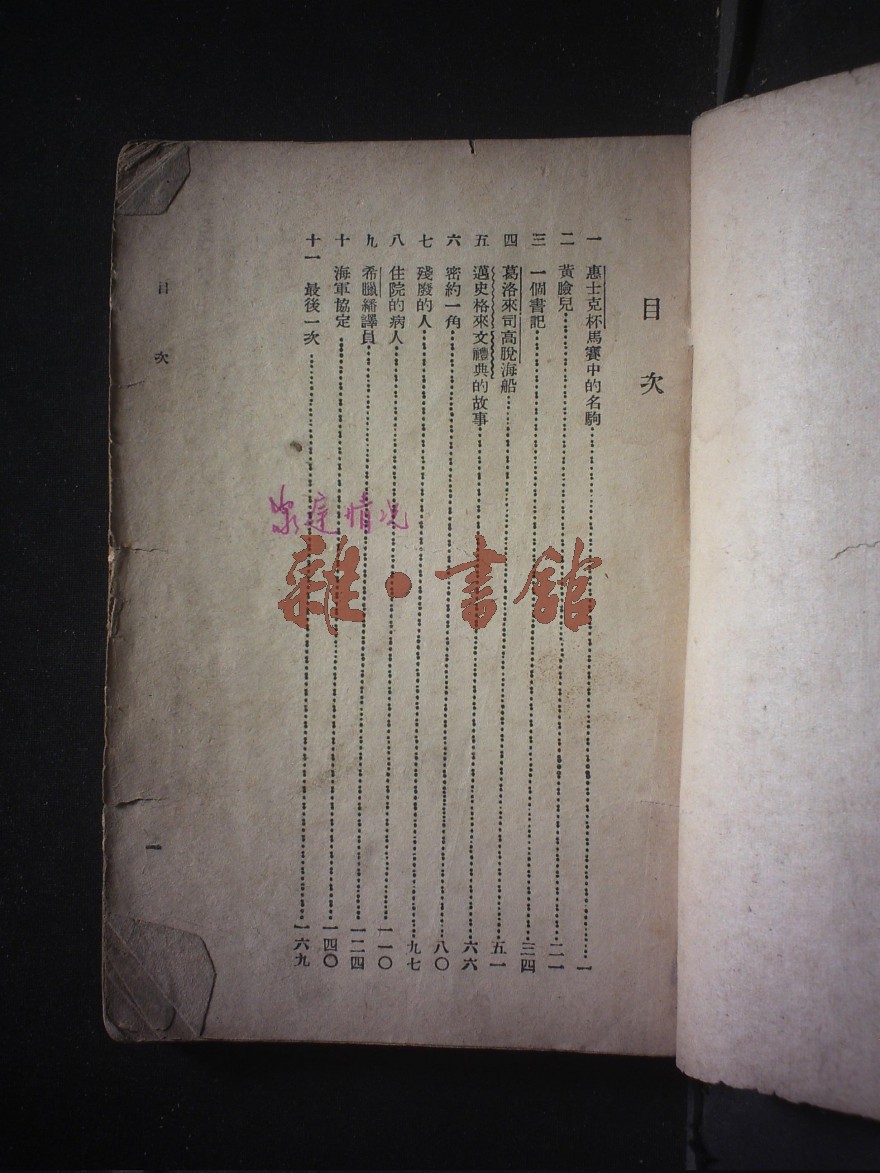 目次
一 惠士克杯馬賽中的名駒 一
二 黃臉兒 二一
三 一個書記 三四
四 葛洛來司高脫海船 五一
五 邁史格來文禮典的故事 六六
六 密約一角 八〇
七 殘廢的人 九七
八 住院的病人 一一〇
九 希臘繙譯員 一二四
十 海軍協定 一四〇
十一 最後一次 一六九
目次
一
情况
雜·書館